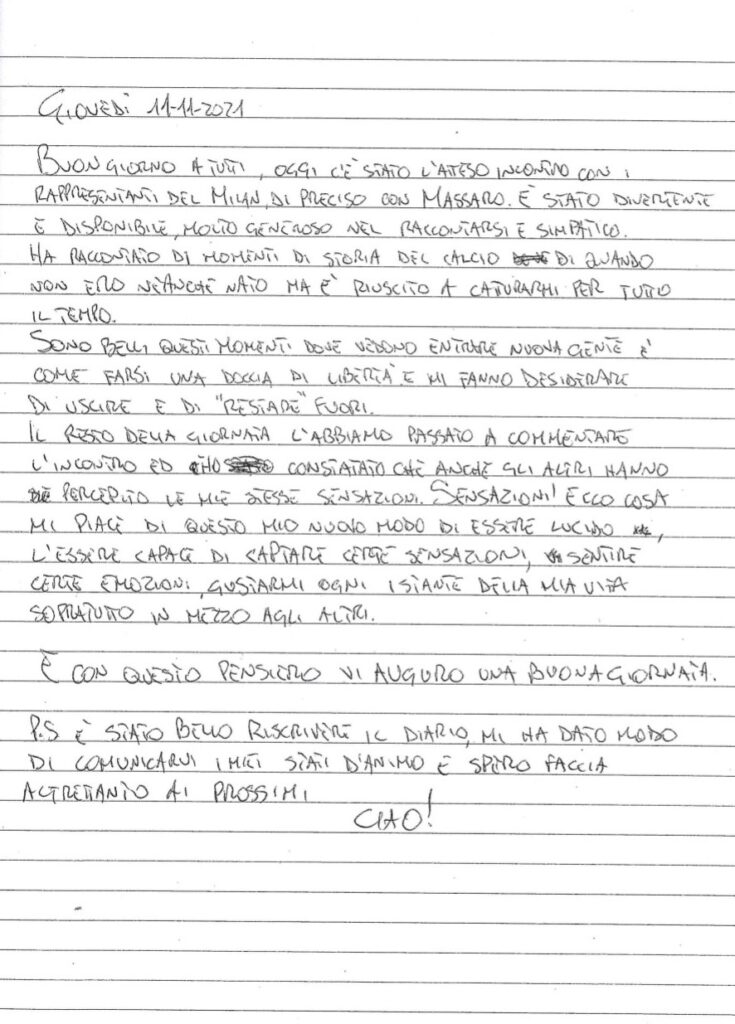 Giovedì 11-11-2021
Buongiorno a tutti, oggi c'è stato l'atteso incontro con i
rappresentanti del Milan, di preciso con Massaro. È stato divertente
e disponibile, molto generoso nel raccontarsi e simpatico.
Ha raccontato di momenti di storia del calcio di quando
non ero neanche nato ma è riuscito a catturarmi per tutto
il tempo.
Sono belli questi momenti dove vedono entrare nuova gente è
come farsi una doccia di libertà e mi fanno desiderare
di uscire e di "restare" fuori.
Il resto della giornata l'abbiamo passato a commentare
l'incontro ed ho constatato che anche gli altri hanno
percepito le mie stesse sensazioni. Sensazioni! Ecco cosa
mi piace di questo mio nuovo modo di essere lucido,
l'essere capace di captare certe sensazioni, sentire
certe emozioni, gustarmi ogni istante della mia vita
sopratutto in mezzo agli altri.
E con questo pensiero vi auguro una buona giornata.
P.S è stato bello riscrivere il diario, mi ha dato modo
di comunicarvi i miei stati d'animo e spero faccia
altrettanto ai prossimi
Ciao!